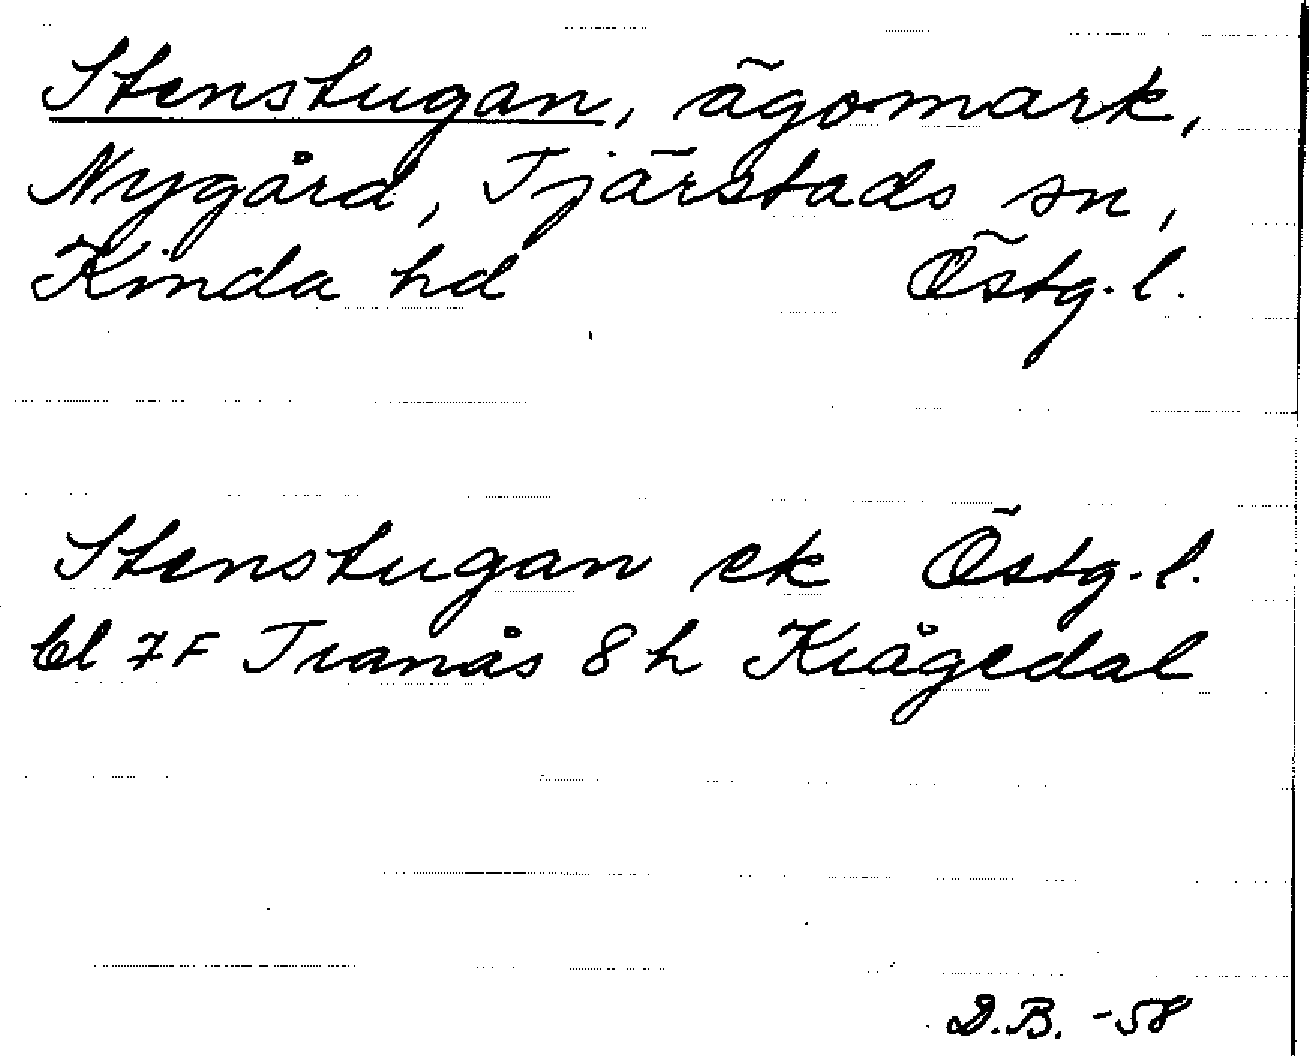 Stenstugan, ägomark,
Nygård, Tjärstads sn,
Kinda hd Östg. l.
Stenstugan ek Östg. l.
bl 7F Tranås 8 h Krågedal
D.B. -58